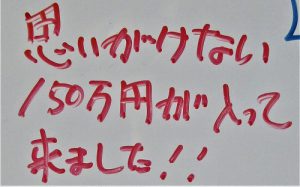 思いがけない
150万円が入って
来ました!!